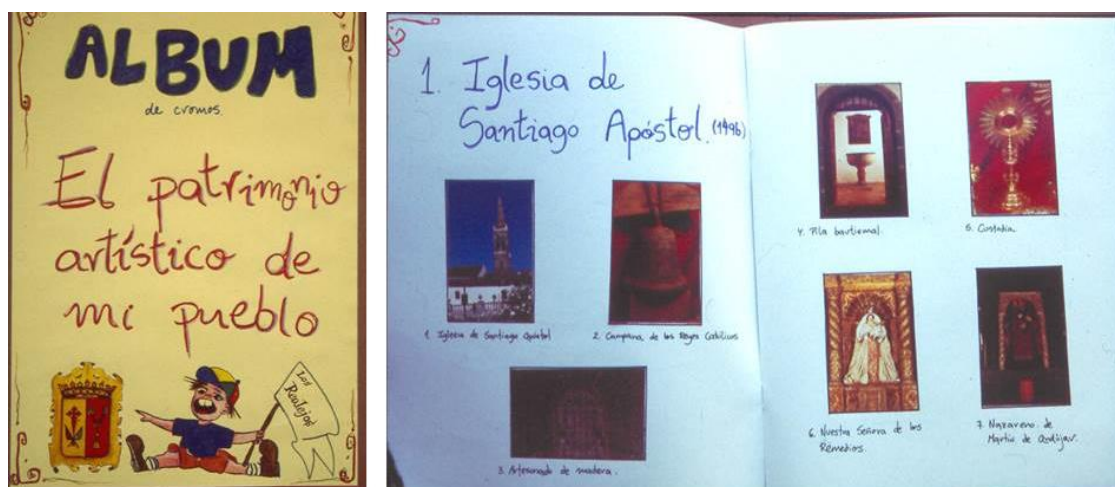 ALBUM
de cromos.
El patrimonio
artístico de
mi pueblo
Los
Realejos
1. Iglesia de
Santiago Apóstol. (1496)
1. Iglesia de Santiago Apóstol
2. Campana de los Reyes Católicos
3. Artesonado de madera.
4. Pila bautismal.
5. Custodia.
6. Nuestra Señora de los
Remedios.
7. Nazareno de
Martín de Andújar.